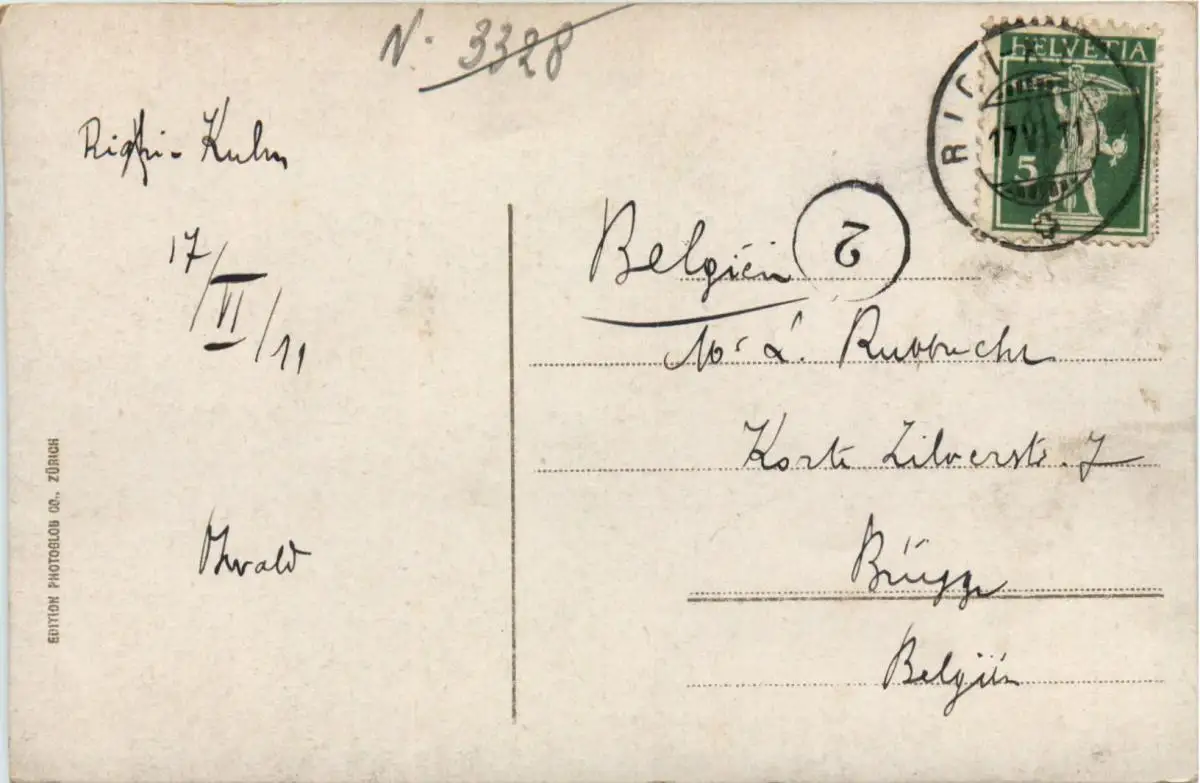 N. 3328
Righi-Kulm
17/VI/11
EDITION PHOTOGLOB CO., ZÜRICH
HELVETIA
5
RIGI
17 VI 11
2
Belgien
Mr L. Rubbrecht
Korte Zilverstr. 7
Brügge
Belgien